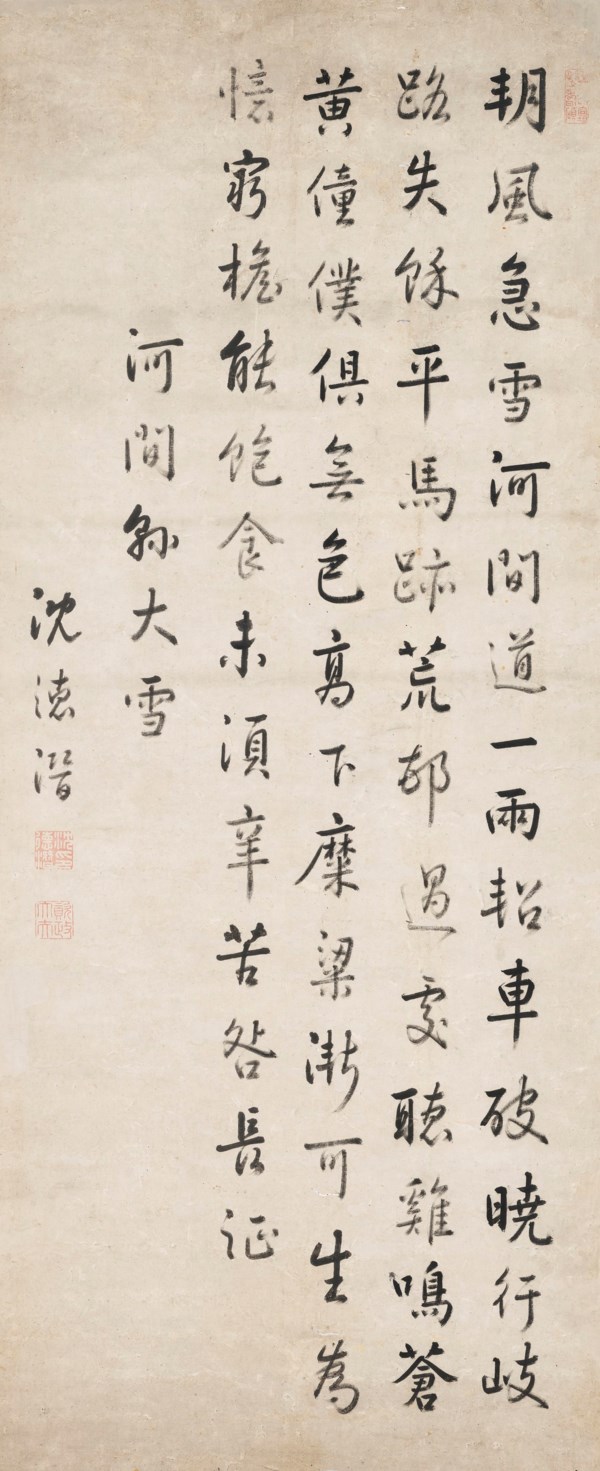 朔風急雪河間道一兩軺車破曉行岐
路失餘平馬跡荒邨過處聽雞鳴蒼
黃僮僕俱無色高下糜粱漸可生為
憶窮檐能飽食未須辛苦咎長征
河間縣大雪
沈德潛